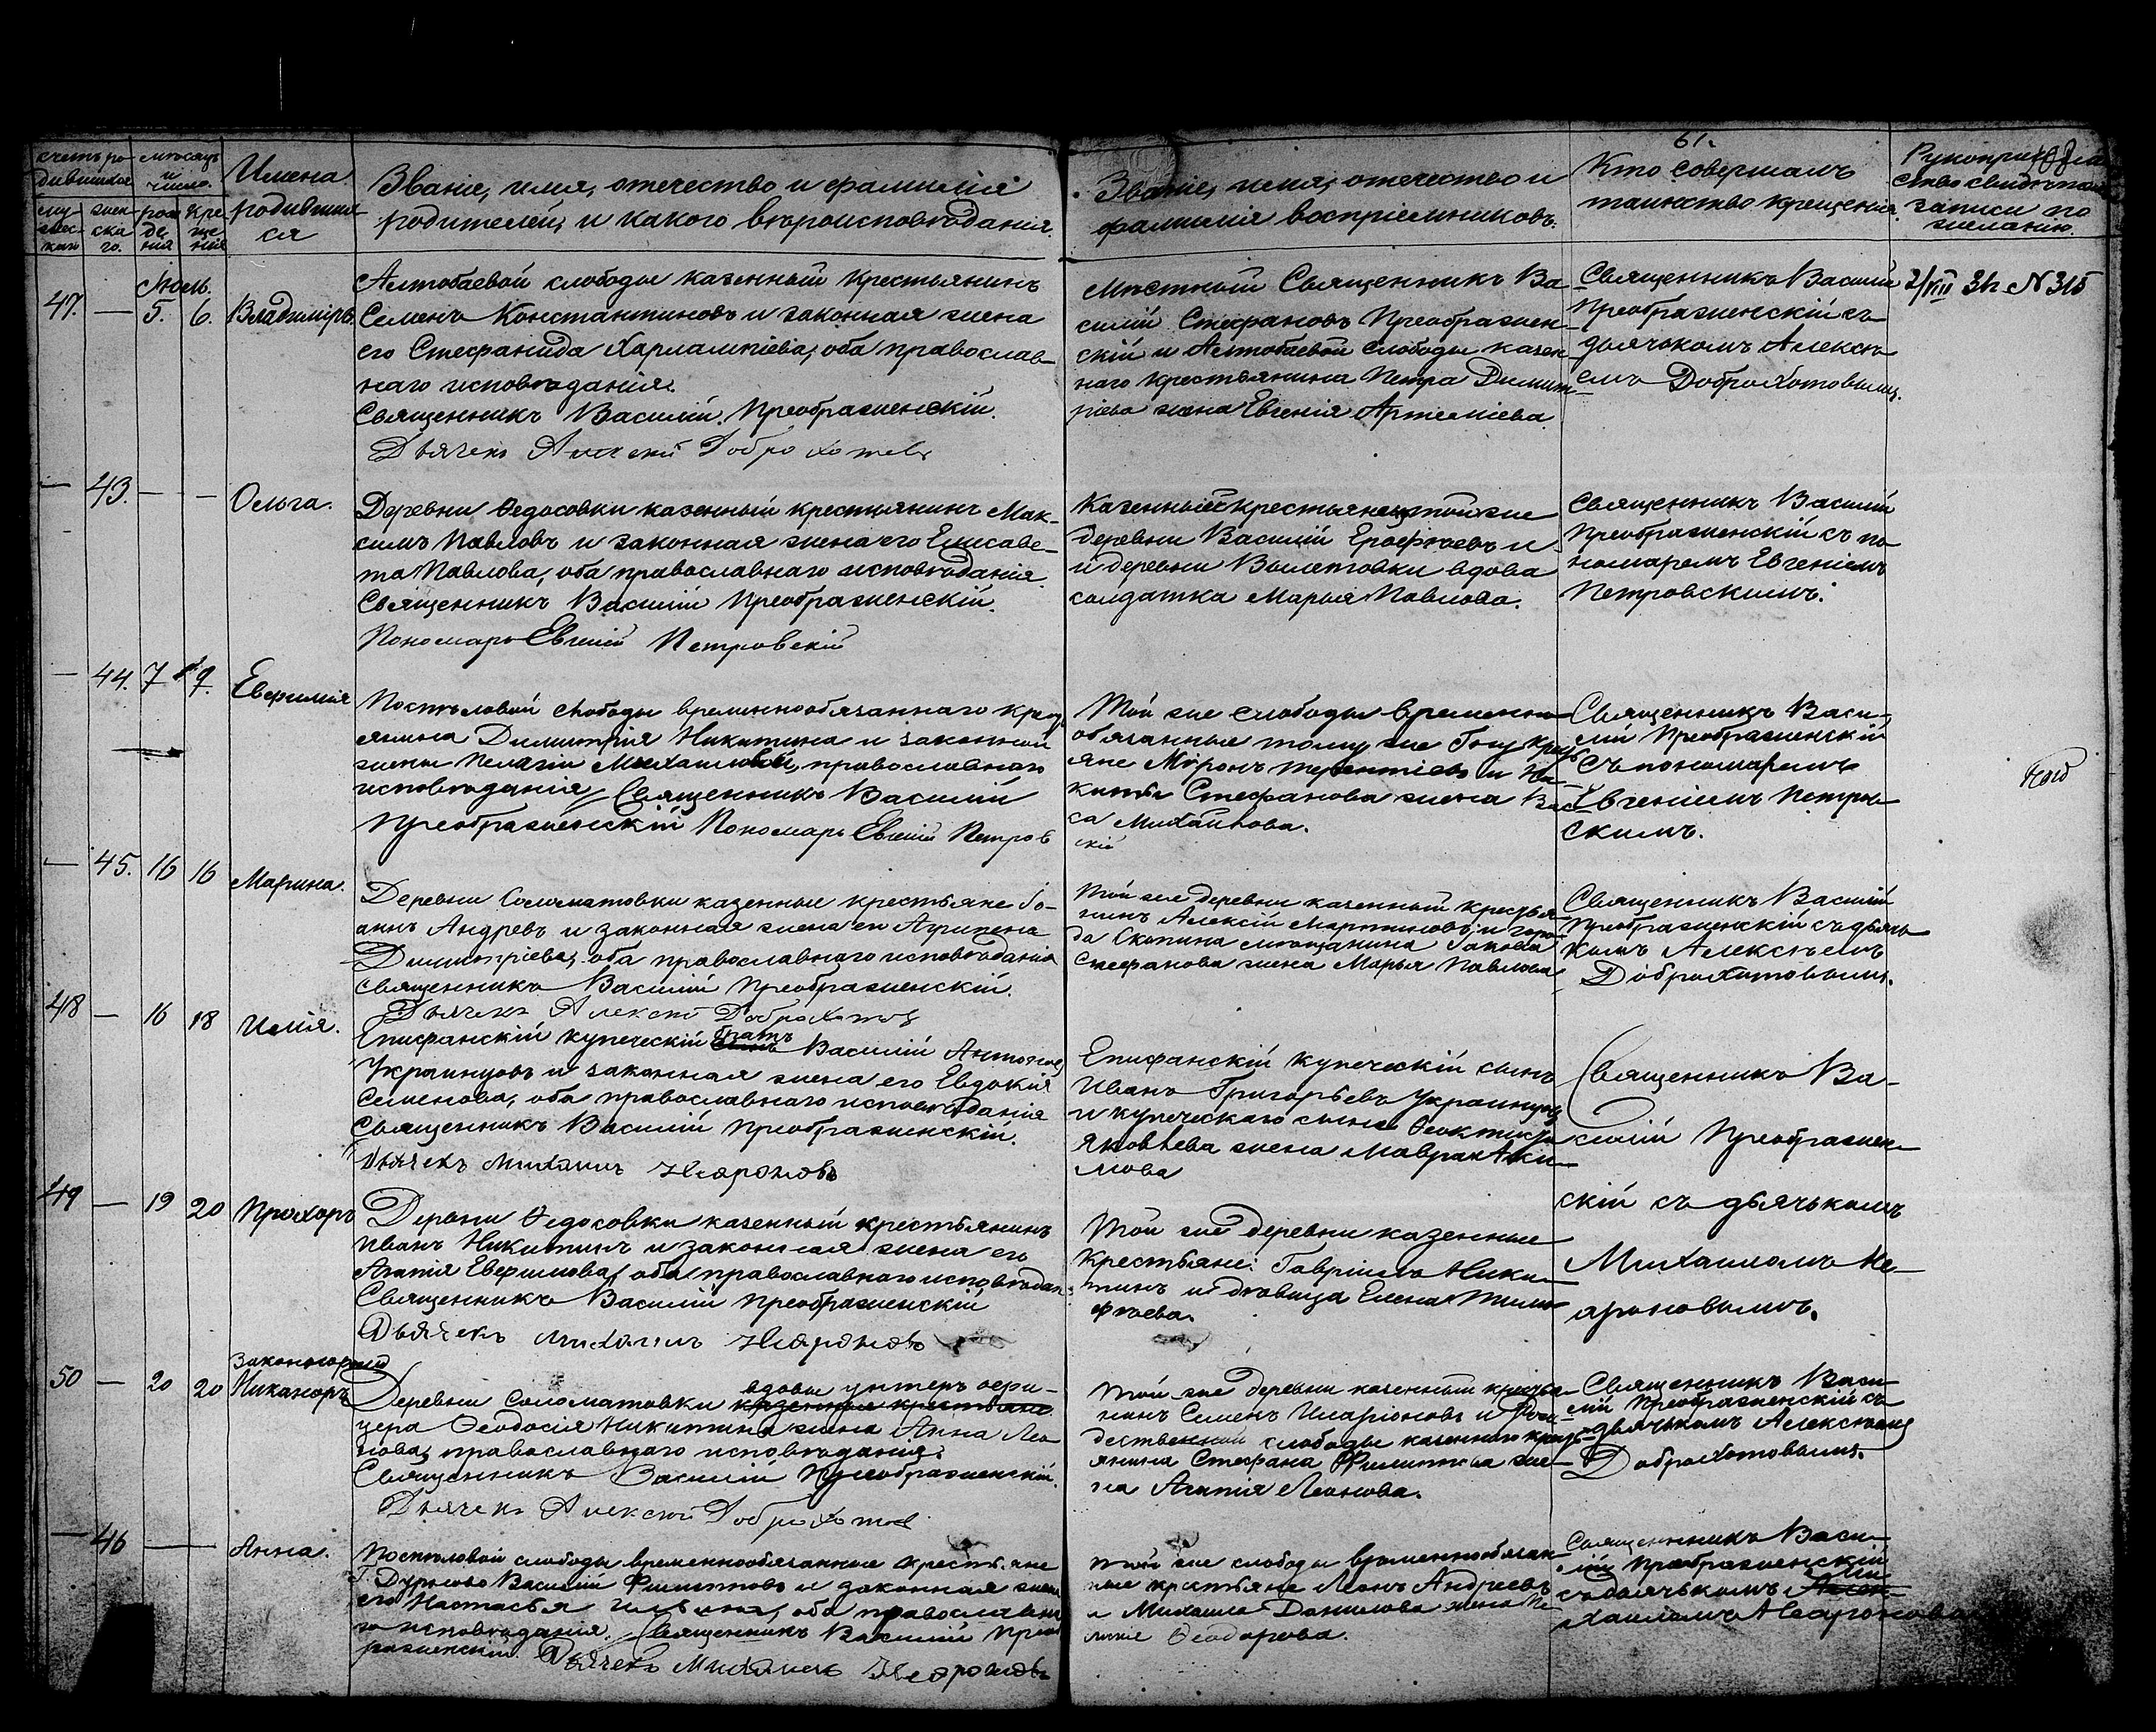 61.
счетъ ро-
дившихся
мѣсяцъ
и
число.
Имена
родивших-
ся
муж-
скаго
жен-
ска-
го.
рож
де-
нія
кре
ще-
нія
Званіе, имя, отечество и фамилія
родителей, и какого вѣроисповѣданія.
Званіе, имя, отечество и
фамилія воспріемниковъ.
Кто совершалъ
таинство крещенія.
Рукоприклад
ство свидѣтелей
записи по
желанію.
47. — Іюль. 5. 6. Владиміръ.
Алтобаевой слободы казенный крестьянинъ
Семенъ Константиновъ и законная жена
его Стефанида Харлампіева, оба православ-
наго исповѣданія.
Священникъ Василій Преображенскій.
Дьячекъ Алексѣй Доброхотовъ
Мѣстный Священникъ Ва-
силій Стефановъ Преображен-
скій и Алтобаевой слободы казен-
наго крестьянина Петра Димит-
ріева жена Евгенія Артеміева
Священникъ Василій
Преображенскій съ
дьячькомъ Алексѣ-
емъ Доброхотовымъ.
N 315
— 43. — — Ольга.
Деревни Ѳедосовки казенный крестьянинъ Мак-
симъ Павловъ и законная жена его Елисаве-
та Павлова, оба православнаго исповѣданія
Священникъ Василій Преображенскій.
Пономарь Евгеній Петровскій
Казенный крестьянинъ той же
деревни Василій Ерофѣевъ и
и деревни вдова
солдатка Марья Павлова.
Священникъ Василій
Преображенскій съ по-
номаремъ Евгеніемъ
Петровскимъ.
— 44. 7 9. Евфимія
слободы временнообязаннаго крест
янина Димитрія Никитина и законной
жены Пелагіи Михайловой, православнаго
исповѣданія Священникъ Василій
Преображенскій Пономарь Евгеній Петров
скій
Той же слободы временно-
обязанные тому же Гну крест
яне Миронъ Терентіевъ и Ни-
киты Стефанова жена
са Михайлова.
Священникъ Васи-
лій Преображенскій
съ пономаремъ
Евгеніемъ Петров-
скимъ.
— 45. 16 16 Марина.
Деревни Соломатовки казенные крестьяне Іо-
аннъ Андревъ и законная жена ея Агрипена
Димитріева, оба православнаго исповѣданія
священникъ Василій Преображенскій.
Дьячекъ Алексѣй Доброхотовъ
Той же деревни казенный крестья-
нинъ Алексій Мартиновъ и горо-
да Скопина мѣщанина Іакова
Стефанова жена Марья Павлова
Священникъ Василій
Преображенскій съ дьячь-
комъ Алексѣемъ
Доброхотовымъ.
48 — 16 18 Илія.
Епифанскій купеческій братъ Василій Антонов
Украинцовъ и законная жена его Евдокія
Семенова, оба православнаго исповѣданія
Священникъ Василій Преображенскій.
Дьячекъ Михаилъ Неароновъ
Епифанскій купеческій сынъ
Иванъ Григорьевъ Украинцовъ
и купеческаго сына Ѳеоктиста
Яковлева жена Мавра Аки-
мова
Священникъ Ва-
силій Преображен-
скій съ дьячькомъ
Михаиломъ Не-
ароновымъ.
49 — 19 20 Прохоръ
Дервни Ѳедосовки казенный крестьянинъ
Иванъ Никитинъ и законная жена его
Агапія Евфимова, оба православнаго исповѣдан.
Священникъ Василій Преображенскій
Дьячекъ Михаилъ Неароновъ
Той же деревни казенные
крестьяне: Гавріилъ Ники-
тинъ и дѣвица Елена Тимо-
фѣева.
50 — 20 20 Законнорожд
Никаноръ
вдовы унтеръ офи-
Деревни Соломатовки казенные крестьяне
цера Ѳеодосія Никитина жена Анна Лео
нова, православнаго исповѣданія.
Священникъ Василій Преображенскій.
Дьячекъ Алексѣй Доброхотовъ
Той же деревни казенный крестья-
нинъ Семенъ Иларіоновъ и Рож-
дественской слободы казеннаго кресть-
янина Стефана Филипова же-
на Агапія Леонова.
Священникъ Васи-
лій Преображенскій съ
дьячькомъ Алексѣемъ
Доброхотовымъ.
— 46 — — Анна.
слободы временнообязанные крестьяне
Г. Василій Филиповъ и законная жена
его Настасья Ильина, оба православна
го исповѣданія. Священникъ Василій Преоб
раженскій. Дьячекъ Михаилъ Неароновъ
Той же слободы временнообязан-
ные крестьяне Леонъ Андреевъ
и Михаила Данилова жена Пе-
лагія Ѳеодорова.
Священникъ Васи-
лій Преображенскій
съ дьячькомъ Алек Ми
хаиломъ Неароновымъ